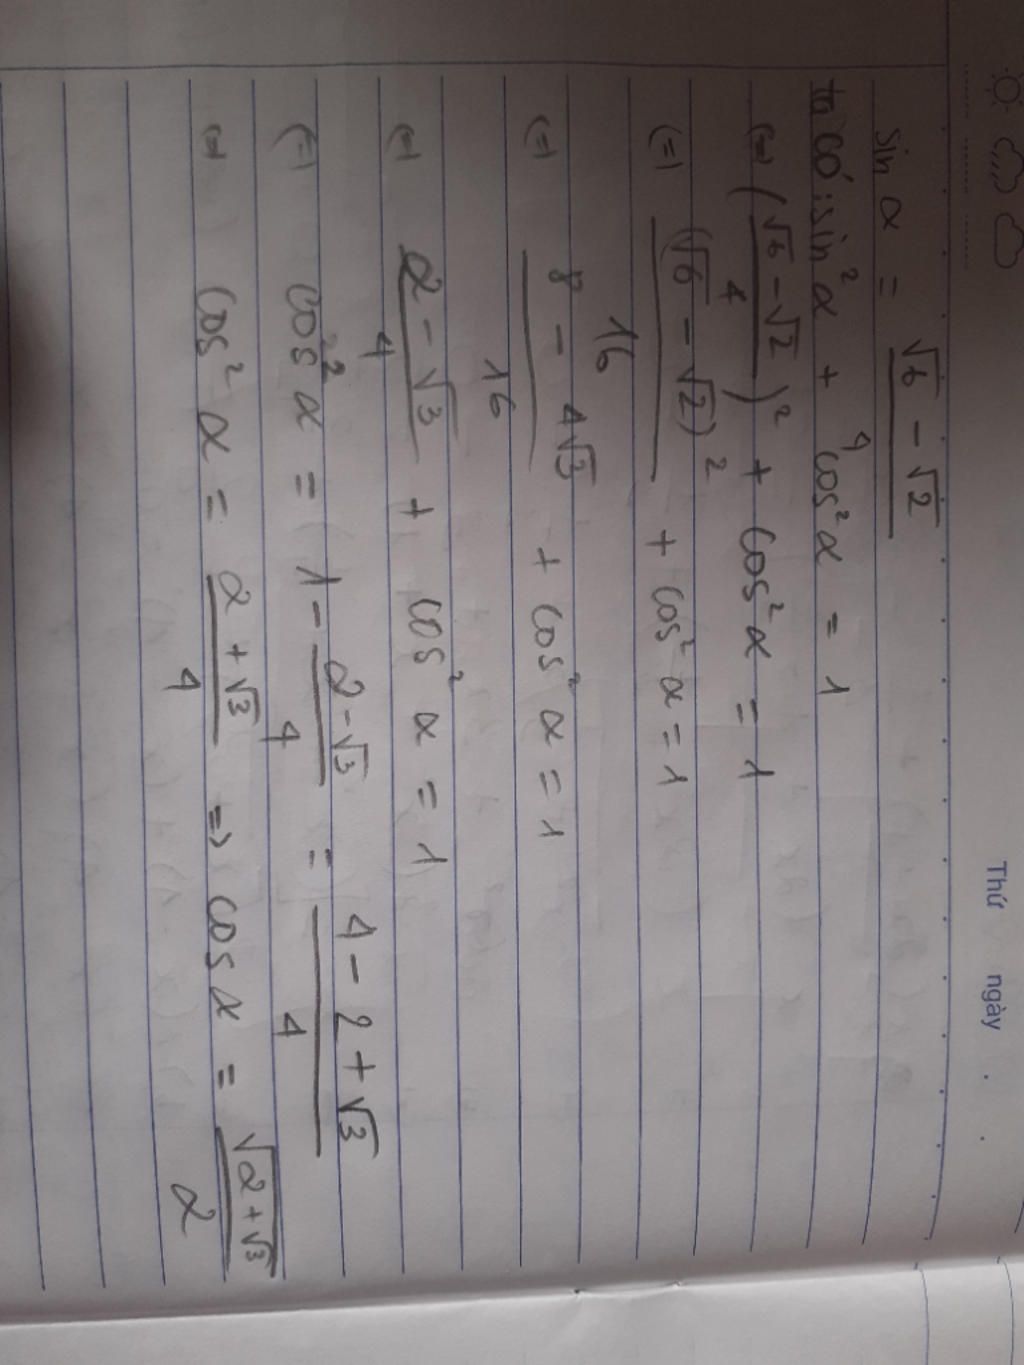 Thứ ngày . .
sin α = (√6 - √2)/4
ta có: sin²α + cos²α = 1
(=) ((√6 - √2)/4)² + cos²α = 1
(=) (√6 - √2)²/16 + cos²α = 1
(=) (8 - 4√3)/16 + cos²α = 1
(=) (2 - √3)/4 + cos²α = 1
(=) cos²α = 1 - (2 - √3)/4 = (4 - 2 + √3)/4
(=) cos²α = (2 + √3)/4 => cos α = √(2 + √3)/2